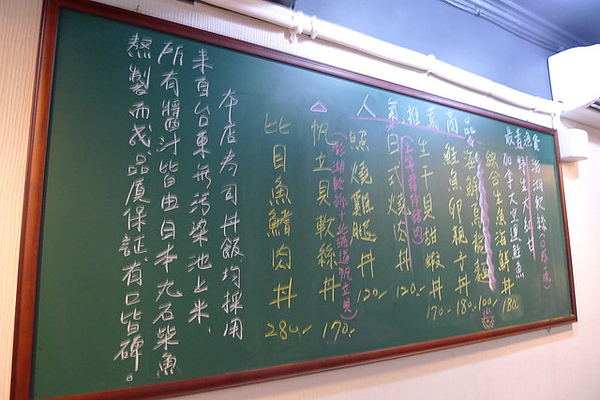 人氣推薦商品
綜合生魚海鮮丼 180.-
100.-
鮭魚卵親子丼 180.-
生干貝甜蝦丼 170.-
日式燒肉丼 120.-
照燒雞腿丼 120.-
帆立貝軟絲丼 170.-
(澎湖軟絲+北海道帆立貝)
比目魚鰭肉丼 280.-
本店壽司丼飯均採用
來自台東無污染池上米、
所有醬汁皆由日本丸石柴魚
熬製而成品質保証有口皆碑。